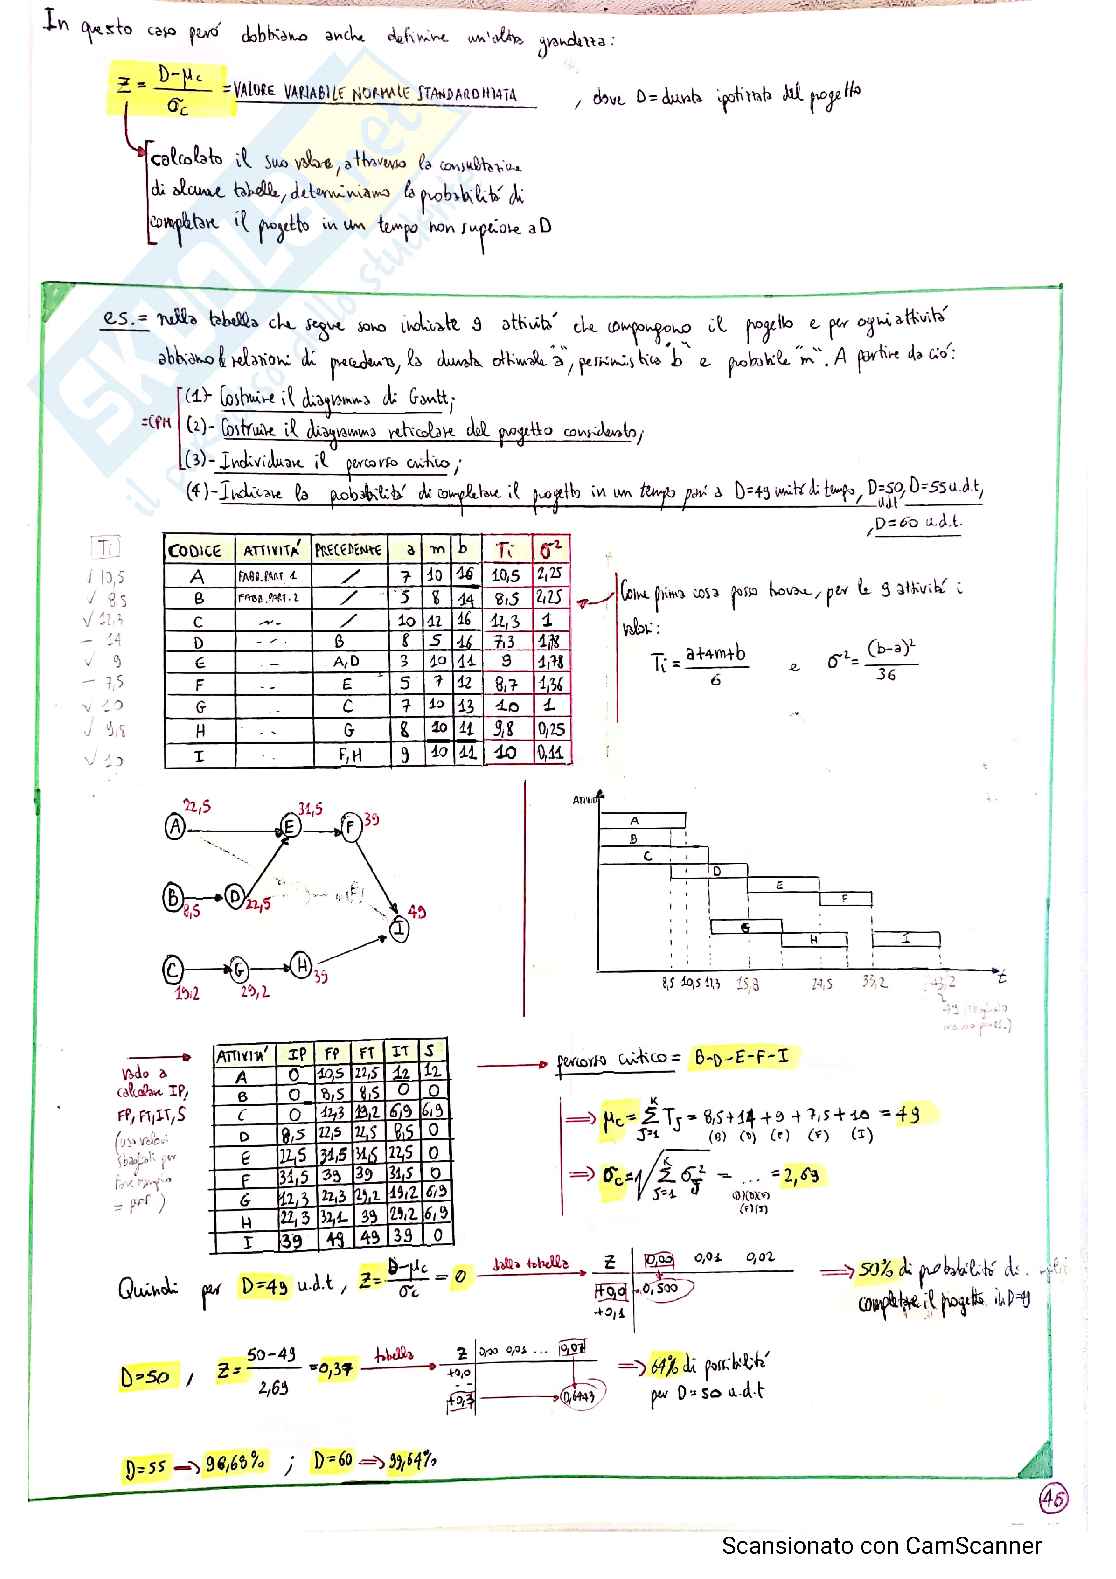 In questo caso però dobbiamo anche definire un'altra grandezza:
Z = D-μc / σc = VALORE VARIABILE NORMALE STANDARDIZZATA , dove D = durata ipotizzata del progetto
calcolato il suo valore, attraverso la consultazione
di alcune tabelle, determiniamo la probabilità di
completare il progetto in un tempo non superiore a D
es. = nella tabella che segue sono indicate 9 attività che compongono il progetto e per ogni attività
abbiamo le relazioni di precedenza, la durata ottimale "a", pessimistica "b" e probabile "m". A partire da ciò:
=CPM
(1)- Costruire il diagramma di Gantt;
(2)- Costruire il diagramma reticolare del progetto considerato;
(3)- Individuare il percorso critico;
(4)- Indicare la probabilità di completare il progetto in un tempo pari a D=49 unità di tempo, D=50 u.d.t, D=55 u.d.t,
, D=60 u.d.t.
Ti
CODICE ATTIVITÀ PRECEDENTE a m b Ti σ²
10,5 A FABB.PART.1 / 7 10 16 10,5 2,25
8,5 B FABB.PART.2 / 5 8 14 8,5 2,25
12,3 C / 10 12 16 12,3 1
14 D B 8 5 16 7,3 1,78
9 E A,D 3 10 11 9 1,78
7,5 F E 5 7 12 8,7 1,36
10 G C 7 10 13 10 1
9,8 H G 8 10 11 9,8 0,25
10 I F,H 9 10 11 10 0,11
Come prima cosa posso trovare, per le 9 attività i
valori:
Ti = a+4m+b / 6 e σ² = (b-a)² / 36
22,5 31,5 39
A E F
B D
8,5 22,5
I 49
C G H
19,2 29,2 39
Attività
A
B
C
D
E
F
G
H I
8,5 10,5 12,3 15,8 24,5 33,2 43,2 t
ATTIVITÀ IP FP FT IT S
A 0 10,5 22,5 12 12
B 0 8,5 8,5 0 0
C 0 12,3 19,2 6,9 6,9
D 8,5 22,5 22,5 8,5 0
E 22,5 31,5 31,5 22,5 0
F 31,5 39 39 31,5 0
G 12,3 22,3 29,2 19,2 6,9
H 22,3 32,1 39 29,2 6,9
I 39 49 49 39 0
Vado a
calcolare IP,
FP, FT, IT, S
(uso valori
sbagliati per
= prof)
percorso critico = B-D-E-F-I
μc = Σ Tj = 8,5+14+9+7,5+10 = 49
K J=1 (B) (D) (E) (F) (I)
σc = √ Σ σj² = ... = 2,69
K J=1 (B)(D)(E)
(F)(I)
Quindi per D=49 u.d.t, Z = D-μc / σc = 0 dalla tabella
Z 0,00 0,01 0,02
+0,0 0,500
+0,1
50% di probabilità di
completare il progetto in D=49
D=50 , Z = 50-49 / 2,69 = 0,37 tabella
Z 0,00 0,01 ... 0,07
+0,0
+0,3 0,6443
64% di possibilità
per D=50 u.d.t
D=55 → 98,69% ; D=60 → 99,64%
46
Scansionato con CamScanner